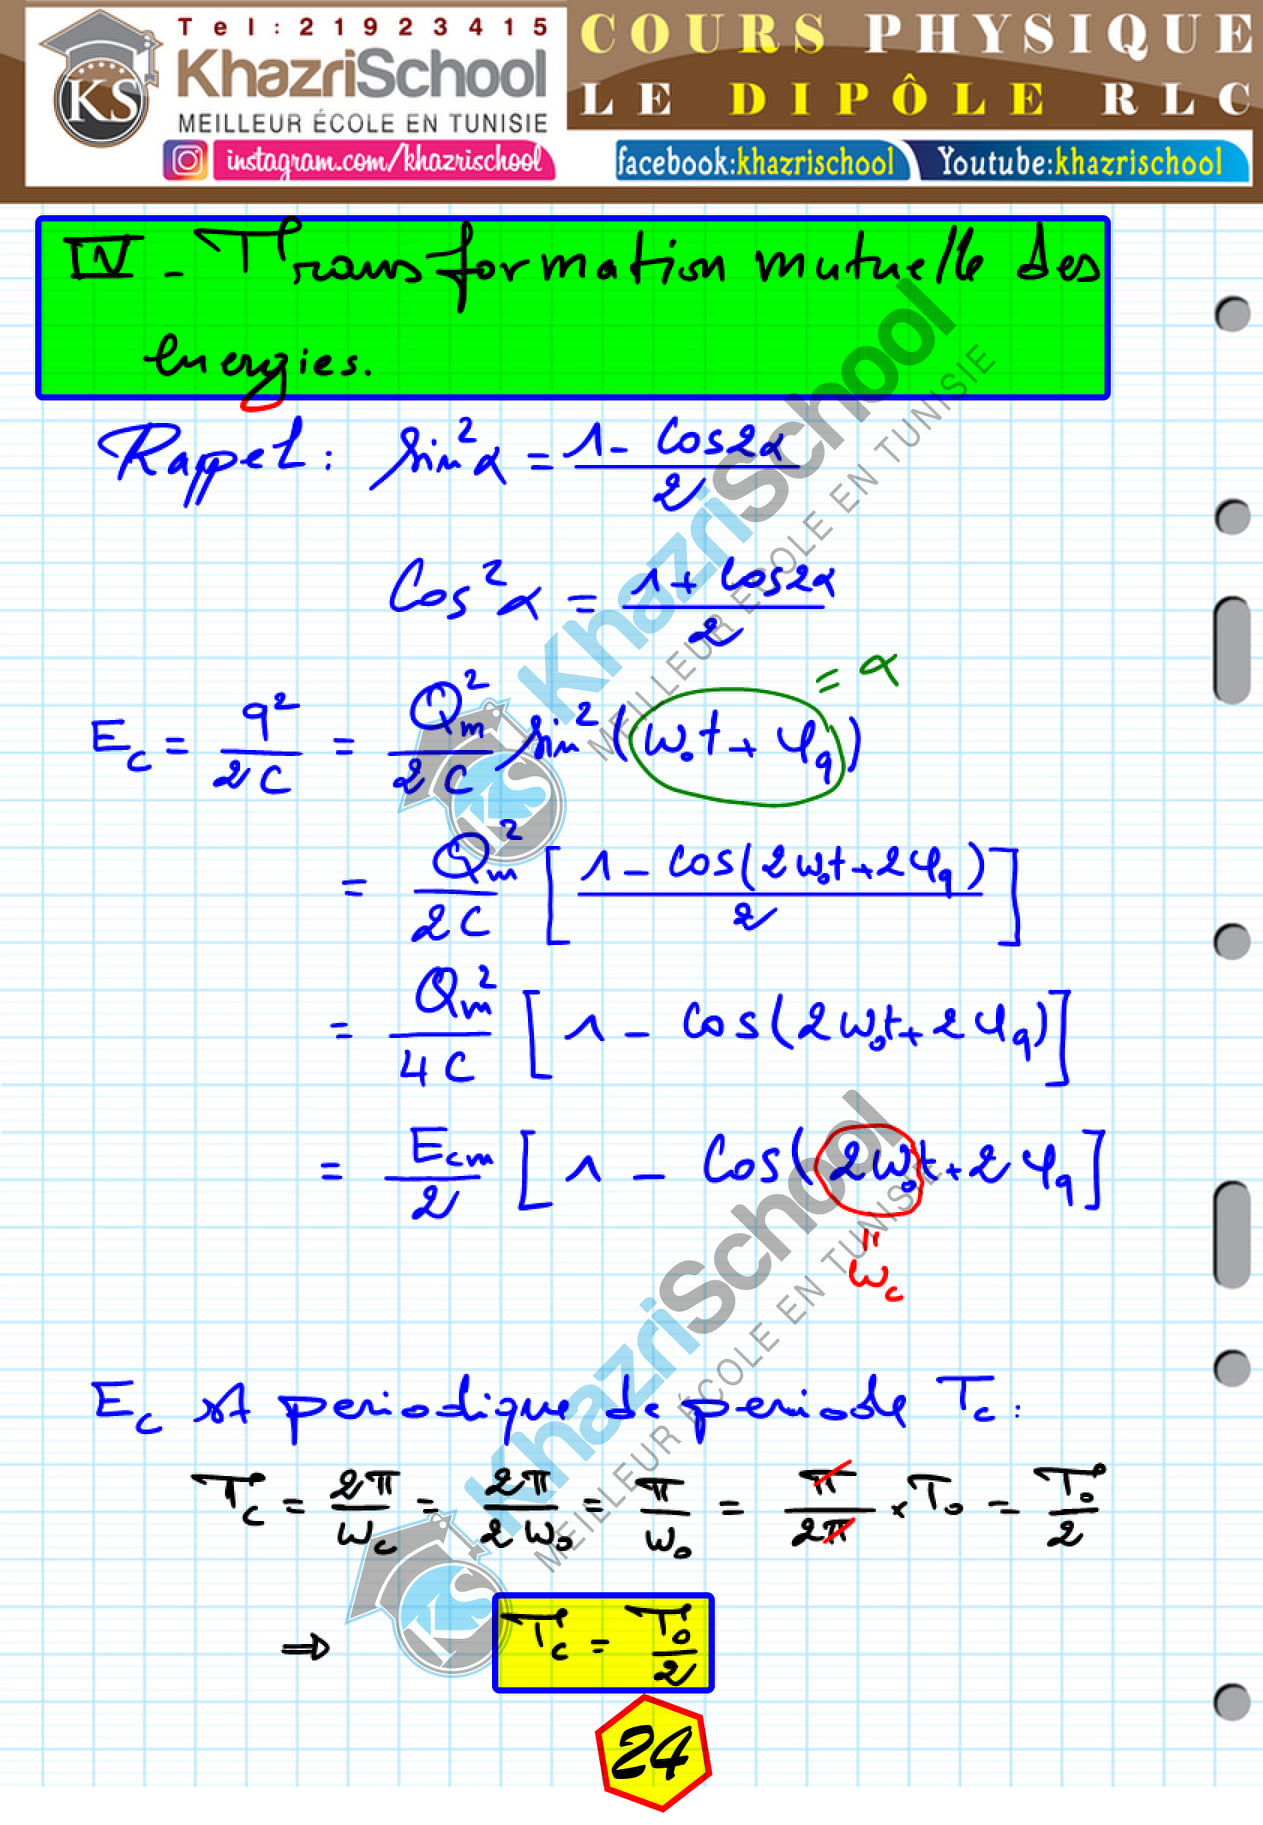 Tel: 21923415
KhazriSchool
MEILLEUR ÉCOLE EN TUNISIE
instagram.com/khazrischool
COURS PHYSIQUE
LE DIPÔLE RLC
facebook:khazrischool
Youtube:khazrischool
IV - Transformation mutuelle des
énergies.
Rappel : sin²α = (1 - cos2α)/2
Cos²α = (1 + cos2α)/2
= α
E_c = q²/2C = Q_m²/2C sin²(ω₀t + φ_q)
= Q_m²/2C [ (1 - cos(2ω₀t + 2φ_q))/2 ]
= Q_m²/4C [ 1 - cos(2ω₀t + 2φ_q) ]
= E_cm/2 [ 1 - cos(2ω₀t + 2φ_q ]
= ω_c
E_c est periodique de periode T_c :
T_c = 2π/ω_c = 2π/2ω₀ = π/ω₀ = π/2π × T₀ = T₀/2
⇒ T_c = T₀/2
24
KS
KhazriSchool
MEILLEUR ÉCOLE EN TUNISIE
KS
KhazriSchool
MEILLEUR ÉCOLE EN TUNISIE
KS